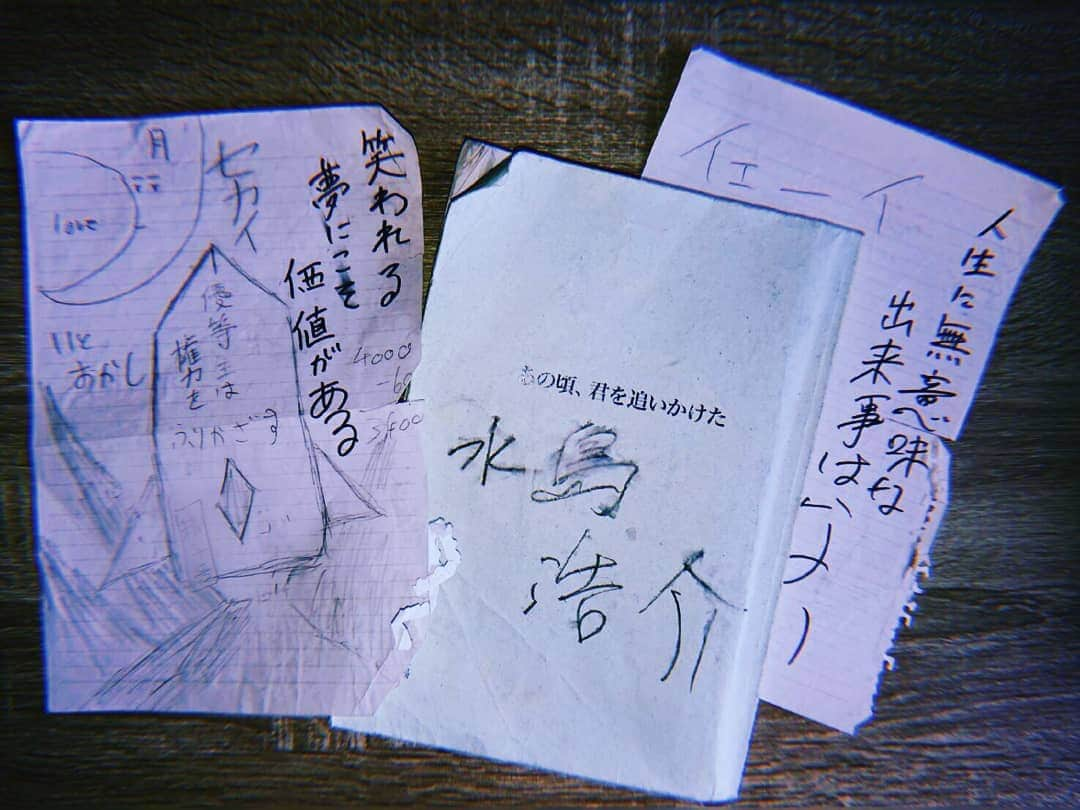 月
love
セカイ
笑われる
夢にこそ
価値がある
いと
おかし
優等生は
権力を
ふりかざす
4000
あの頃、君を追いかけた
水島
浩介
イェーイ
人生に無意味な
出来事は